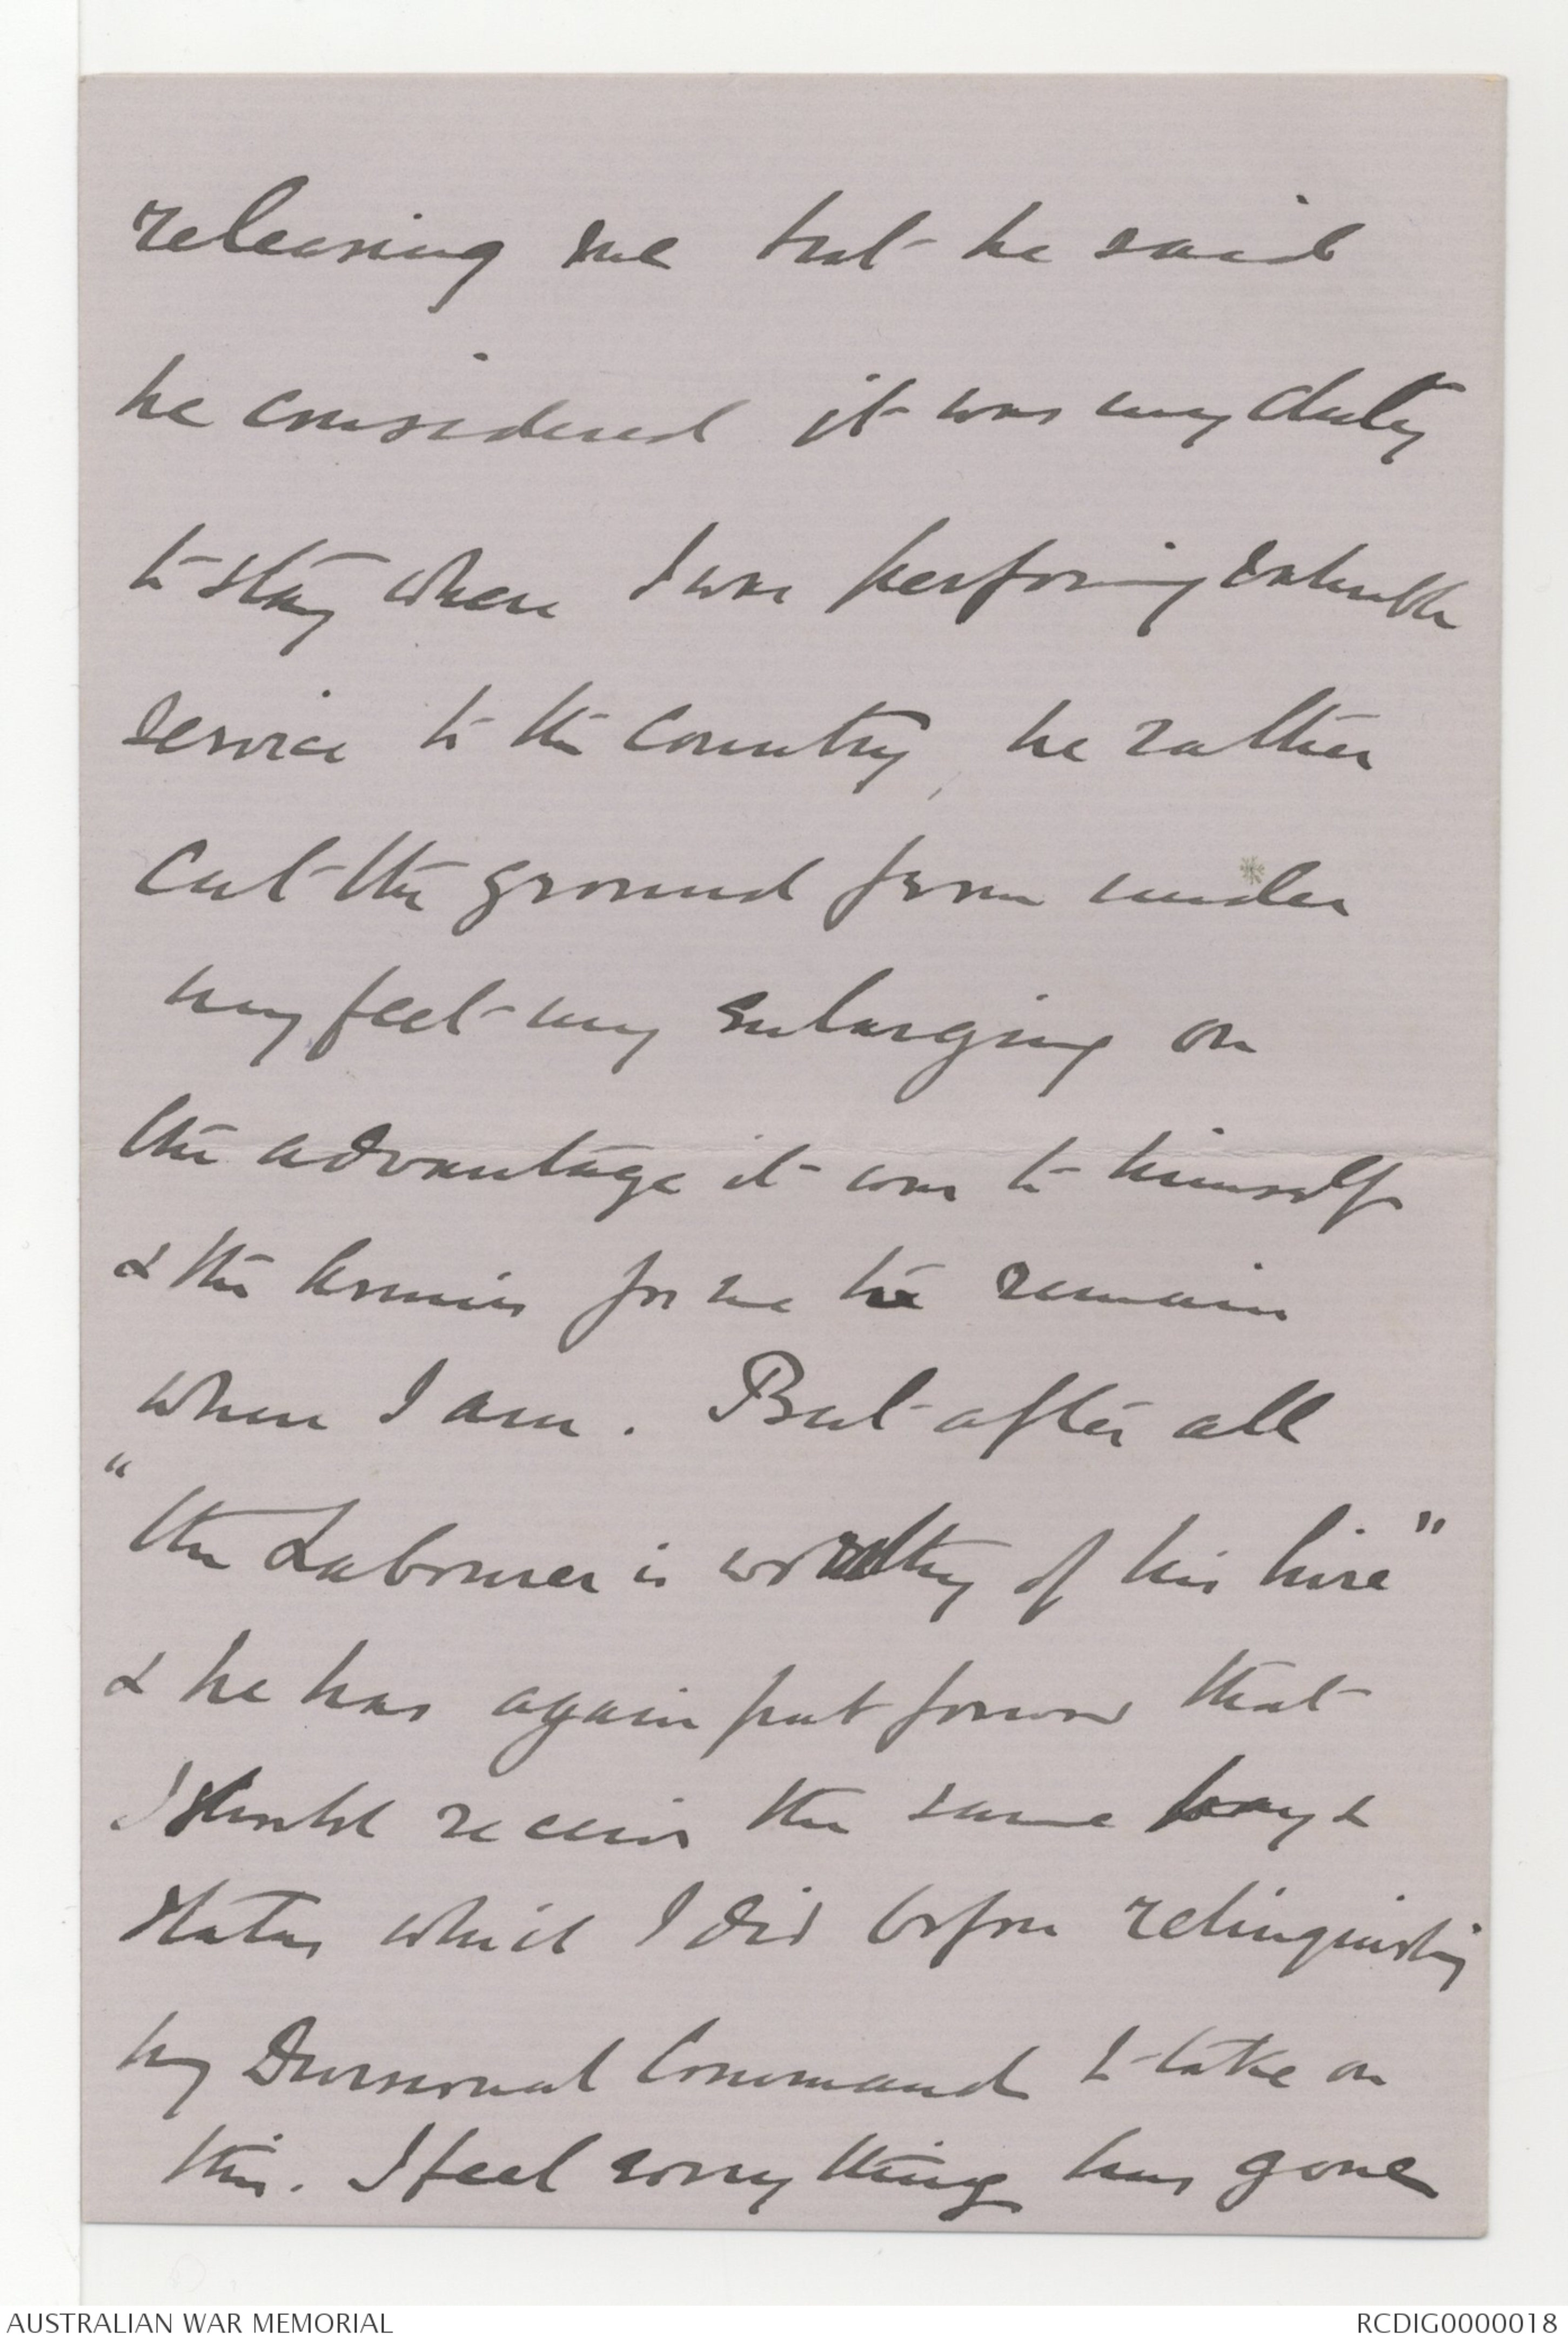 releasing me but he said
he considered it was my duty
to stay where I was performing valuable
service to the Country, he rather
cut the ground from under
my feet my enlarging on
the advantage it was to himself
& the Armies for me to remain
where I am. But after all
"the Labourer is worthy of his hire"
& he has again put forward that
I should receive the same pay &
status which I did before relinquishing
my Divisional Command to take on
this. I feel every thing has gone
AUSTRALIAN WAR MEMORIAL
RCDIG0000018